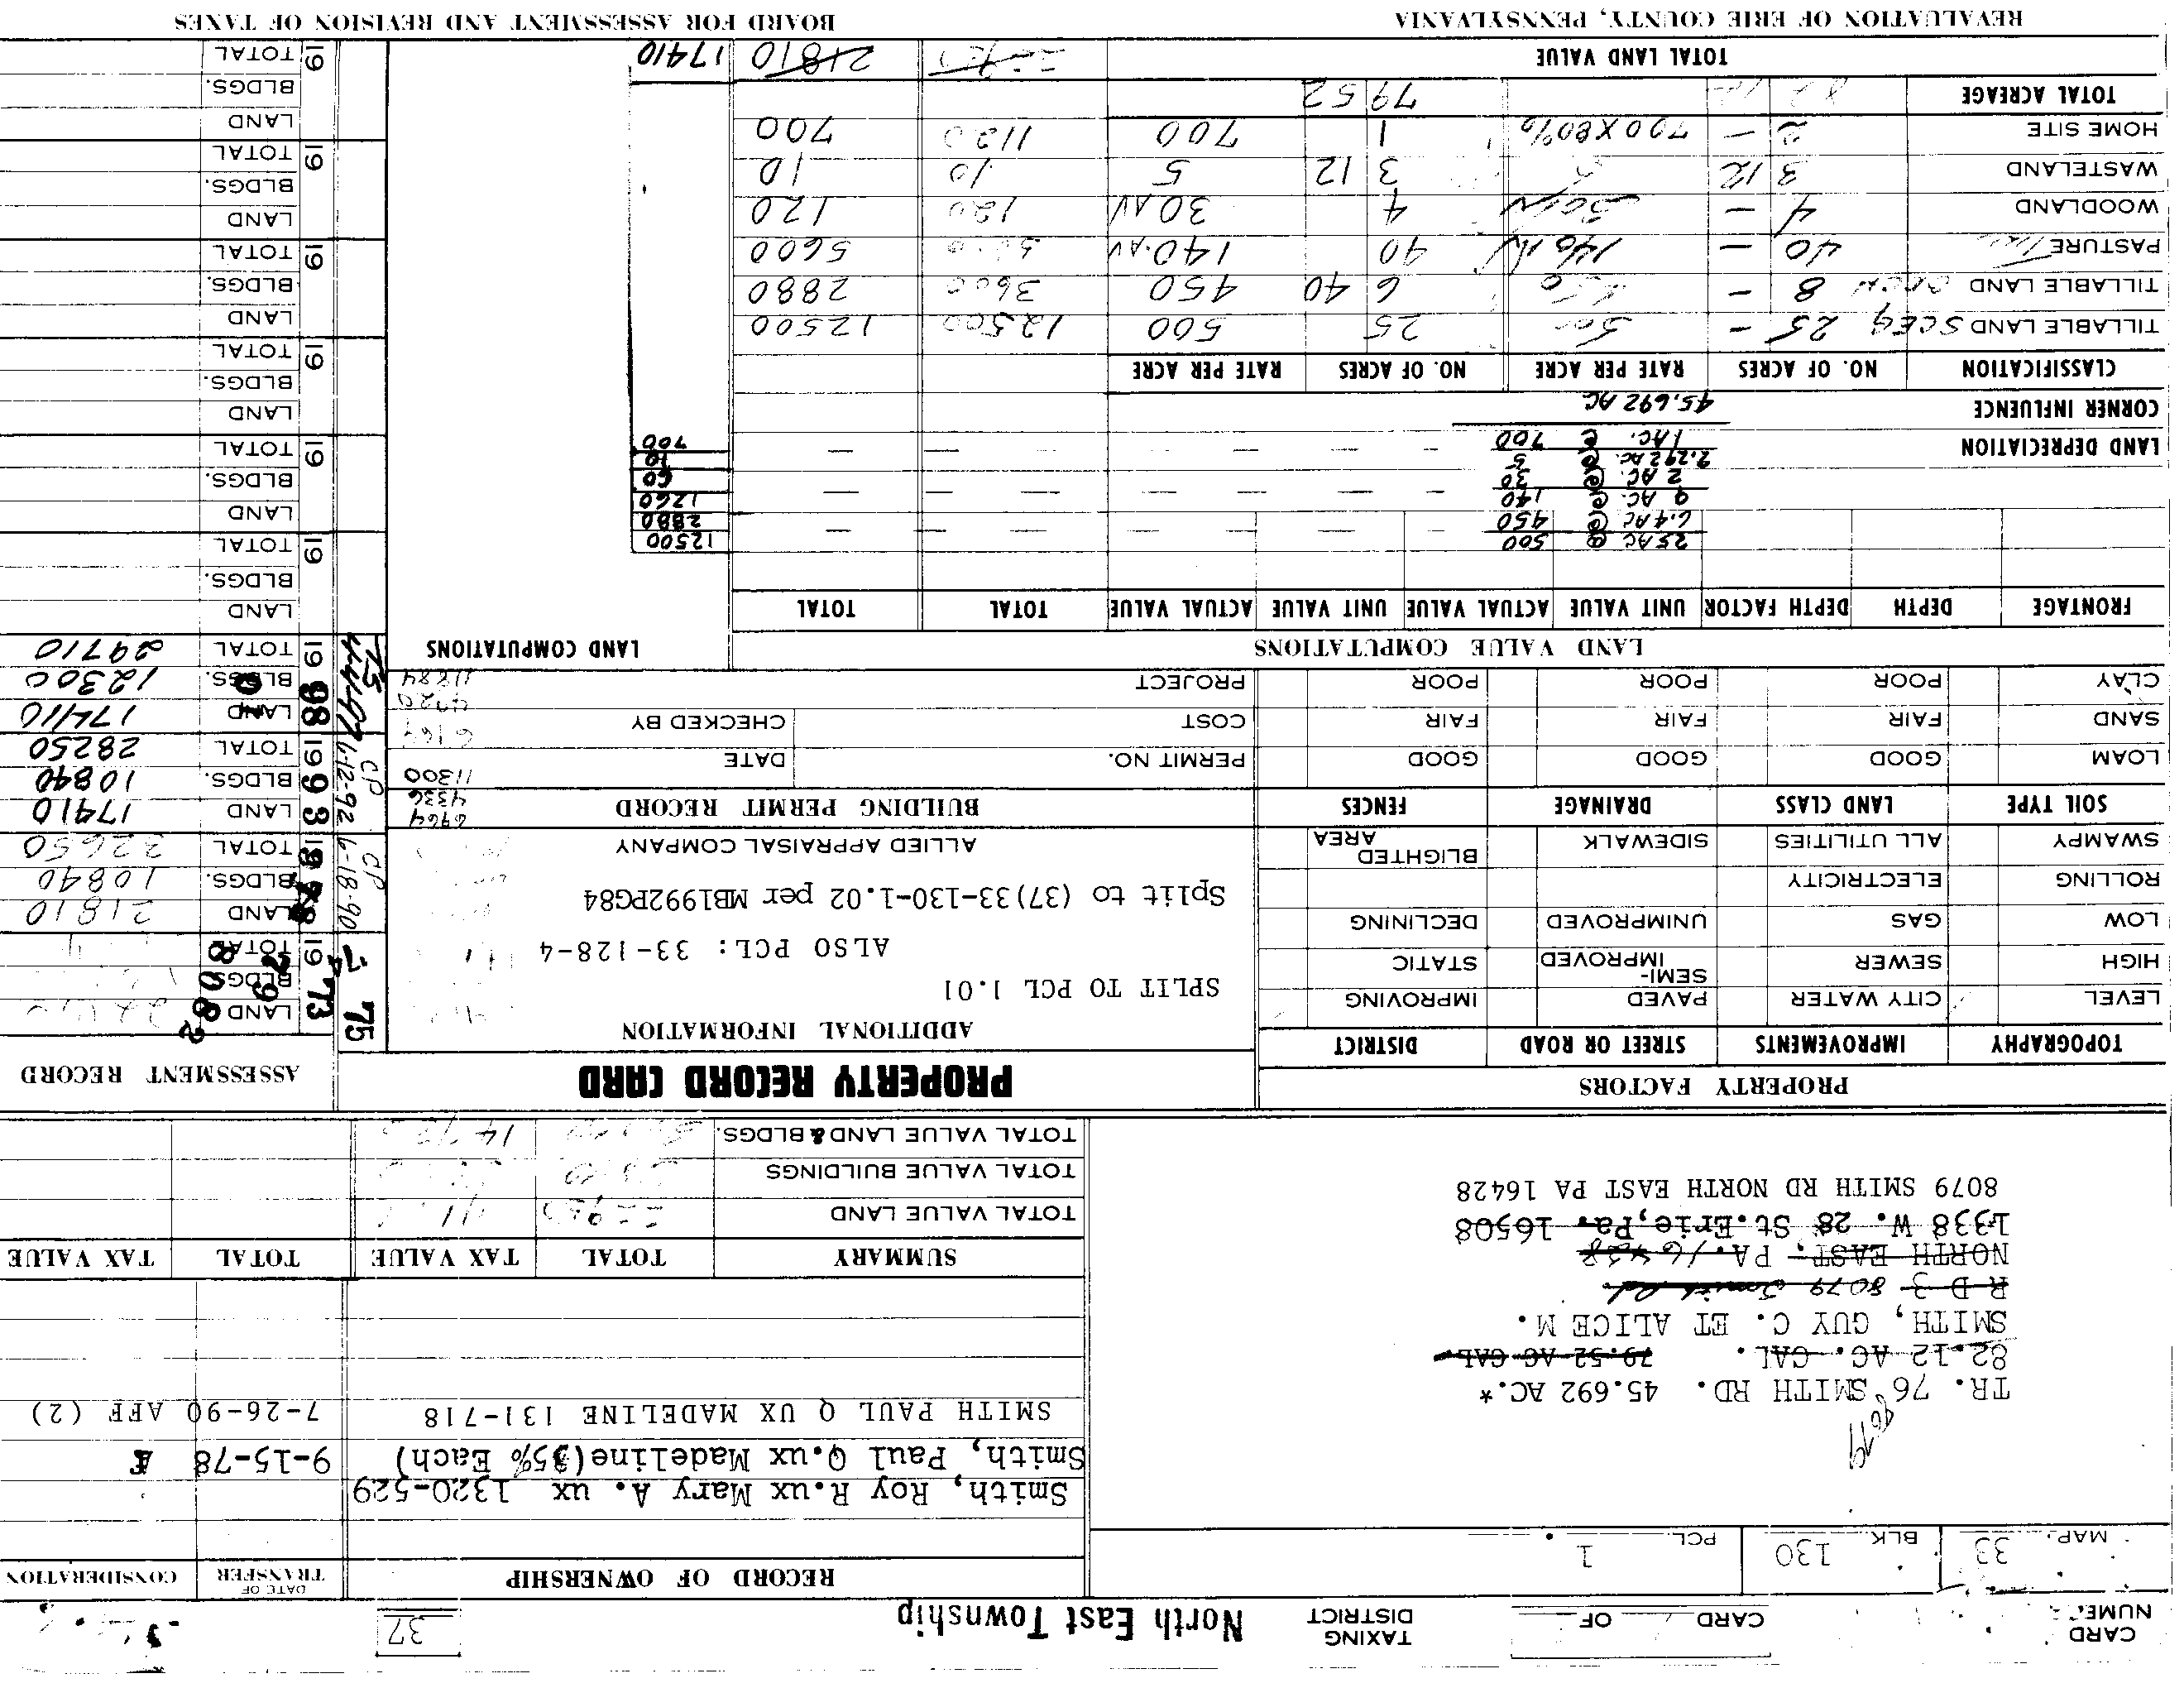 CARD NUMBER
CARD OF
TAXING DISTRICT
North East Township
37
MAP. 33 BLK. 130 PCL. 1
RECORD OF OWNERSHIP
DATE OF TRANSFER
CONSIDERATION
Smith, Roy R.ux Mary A. ux 1320-529
Smith, Paul Q.ux Madeline(35% Each) 9-15-78
SMITH PAUL Q UX MADELINE 131-718 7-26-90 AFF (2)
8079
TR. 76 SMITH RD. 45.692 AC.*
82.12 AC. CAL. 79.52 AC CAL.
SMITH, GUY C. ET ALICE M.
R D 3 8079 Smith Rd
NORTH EAST, PA. 16428
1338 W. 28 St.Erie,Pa. 16508
8079 SMITH RD NORTH EAST PA 16428
SUMMARY TOTAL TAX VALUE TOTAL TAX VALUE
TOTAL VALUE LAND
TOTAL VALUE BUILDINGS
TOTAL VALUE LAND & BLDGS.
PROPERTY FACTORS
TOPOGRAPHY IMPROVEMENTS STREET OR ROAD DISTRICT
LEVEL CITY WATER PAVED IMPROVING
HIGH SEWER SEMI-IMPROVED STATIC
LOW GAS UNIMPROVED DECLINING
ROLLING ELECTRICITY
SWAMPY ALL UTILITIES SIDEWALK BLIGHTED AREA
SOIL TYPE LAND CLASS DRAINAGE FENCES
LOAM GOOD GOOD GOOD
SAND FAIR FAIR FAIR
CLAY POOR POOR POOR
PROPERTY RECORD CARD
ADDITIONAL INFORMATION
SPLIT TO PCL 1.01
ALSO PCL: 33-128-4
Split to (37)33-130-1.02 per MB1992PG84
ALLIED APPRAISAL COMPANY
BUILDING PERMIT RECORD
PERMIT NO. DATE
COST CHECKED BY
PROJECT
6964
4336
11300
11884
ASSESSMENT RECORD
75
74
73
79
80 82
19 LAND
BLDGS.
TOTAL
CP 6-18-90
1978 LAND 21810
BLDGS. 10840
TOTAL 32650
CP 6-12-92
1993 LAND 17410
BLDGS. 10840
TOTAL 28250
TS 4-4-97
1998 LAND 17410
BLDGS. 12300
TOTAL 29710
19 LAND
BLDGS.
TOTAL
19 LAND
BLDGS.
TOTAL
19 LAND
BLDGS.
TOTAL
19 LAND
BLDGS.
TOTAL
19 LAND
BLDGS.
TOTAL
19 LAND
BLDGS.
TOTAL
LAND VALUE COMPUTATIONS
LAND COMPUTATIONS
FRONTAGE DEPTH DEPTH FACTOR UNIT VALUE ACTUAL VALUE UNIT VALUE ACTUAL VALUE TOTAL TOTAL
25 AC @ 500 12500
6.4 AC @ 450 2880
9 AC. @ 140 1260
2 AC @ 30 60
2.292 AC @ 5 10
LAND DEPRECIATION 1 AC. @ 700 700
CORNER INFLUENCE 45.692 AC
CLASSIFICATION NO. OF ACRES RATE PER ACRE NO. OF ACRES RATE PER ACRE
TILLABLE LAND 25 - 500 25 500 12500 12500
TILLABLE LAND 8 - 6 40 450 3600 2880
PASTURE 40 - 140 AV 40 140.AV 5600
WOODLAND 4 - 30 AV 4 30 AV 120 120
WASTELAND 3 12 5 3 12 5 10 10
HOME SITE 2 - 700X80% 1 700 1120 700
TOTAL ACREAGE 82 12 79 52
TOTAL LAND VALUE 21810 17410
REVALUATION OF ERIE COUNTY, PENNSYLVANIA
BOARD FOR ASSESSMENT AND REVISION OF TAXES